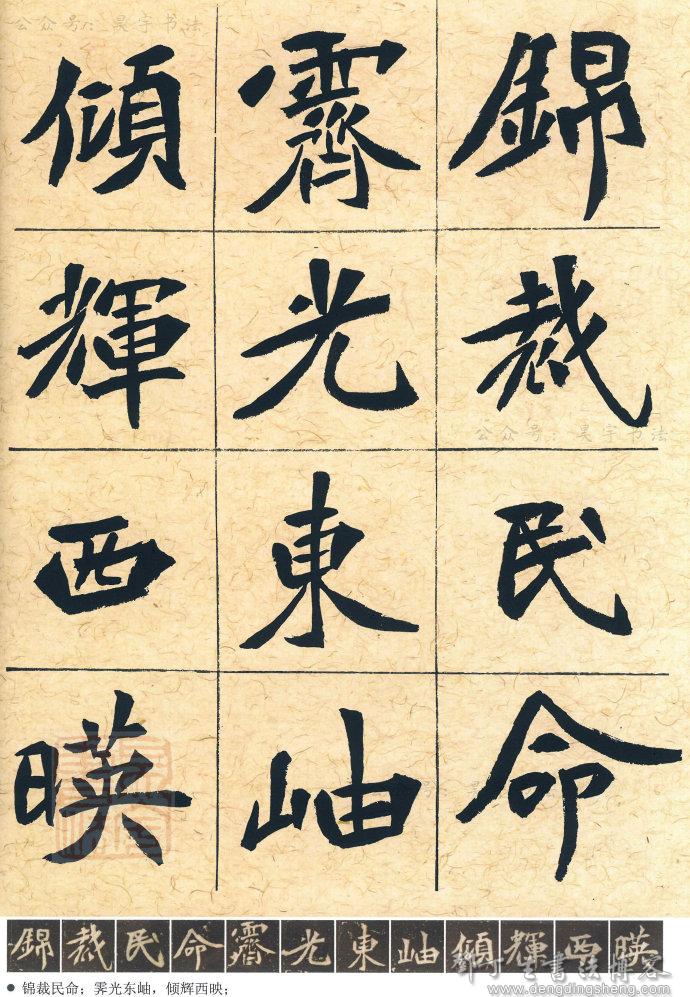 公众号：昊宇书法
錦裁民命
霽光東岫
傾輝西暎
公众号：昊宇书法
錦裁民命霽光東岫傾輝西暎
● 锦裁民命；霁光东岫，倾辉西映；
www.dengdingsheng.com